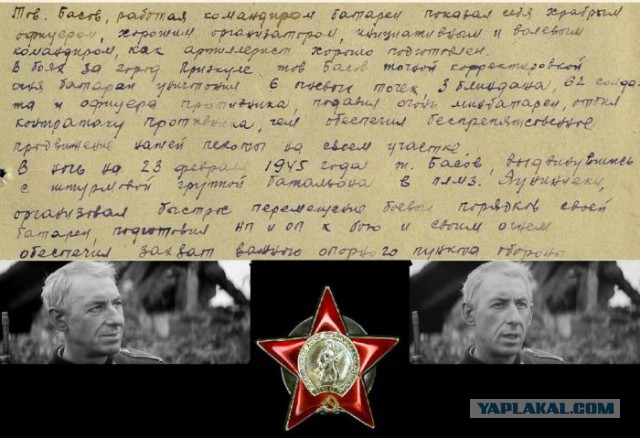 Тов. Басов, работая командиром батареи показал себя храбрым
офицером, хорошим организатором, инициативным и волевым
командиром, как артиллерист хорошо подготовлен.
В боях за город Приекуле тов Басов точной корректировкой
огня батареи уничтожил 6 повоз точек, 3 блиндажа, 62 солда-
та и офицера противника, подавил огонь минбатареи, отбил
контратаку противника, чем обеспечил беспрепятственное
продвижение нашей пехоты на своем участке.
В ночь на 23 февраля 1945 года т. Басов, выдвинувшись
с штурмовой группой батальона в
организовал быстрое перемещение боевых порядков своей
батареи, подготовил НП и ОП к бою и своим огнем
обеспечил захват важного опорного пункта обороны
YAPLAKAL.COM